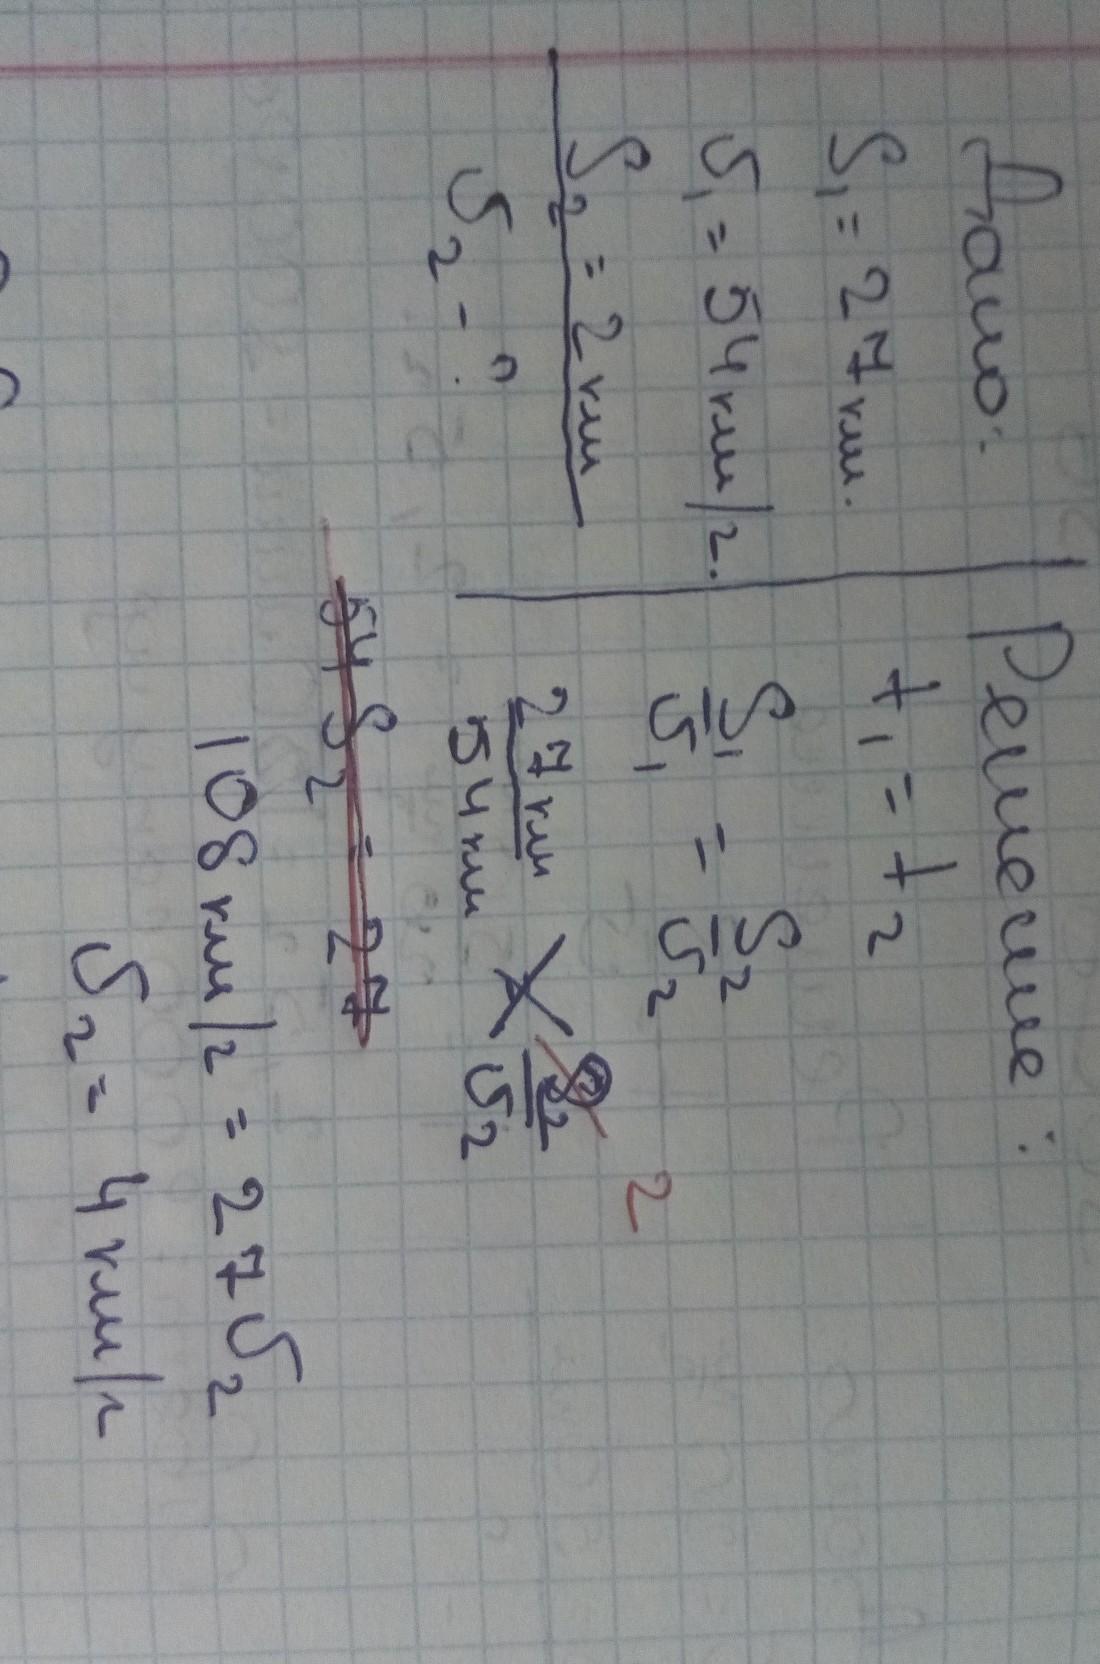 Дано:
S₁ = 27 км.
υ₁ = 54 км/ч.
S₂ = 2 км
υ₂ - ?
Решение:
t₁ = t₂
S₁/υ₁ = S₂/υ₂
27км/54км 2/υ₂
54 S₂ = 27
108 км/ч = 27 υ₂
υ₂ = 4 км/ч